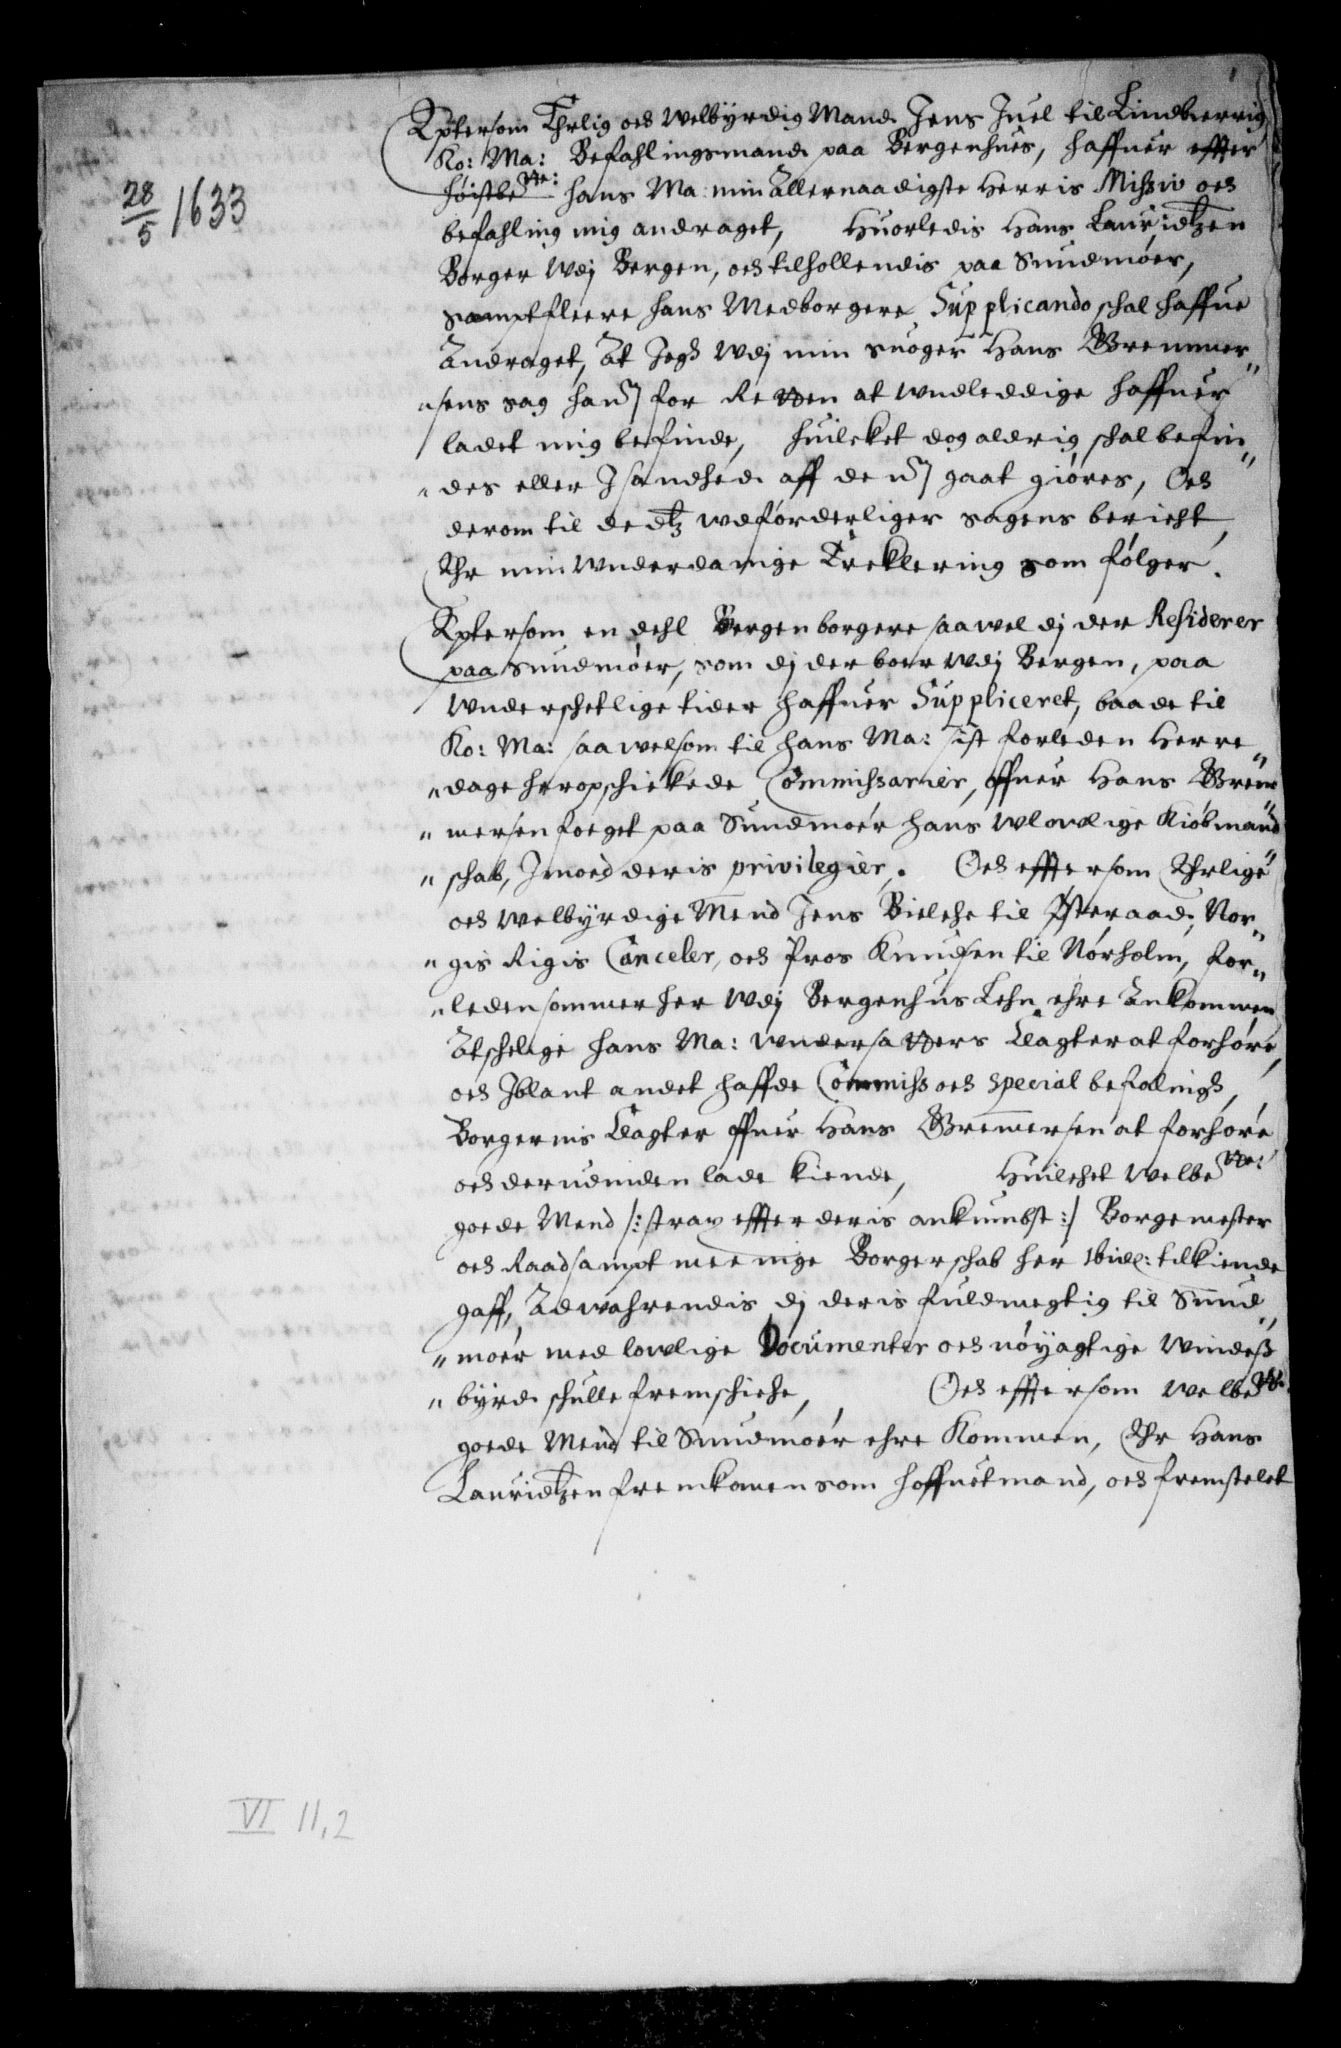 28/5 1633
Epttersom Ehrlig och Welbyrdig Mand Jens Juel til Lindbierrig
Ko: Ma: Befahlingsmand paa Bergenhues, haffuer effter
høistbete: hans Ma: min Allernaadigste Herris Missiv och
befahling mig andraget, Huorledis Hans Lauridtzen
Borger Wdj Bergen, och tilhollendis paa Sundmøer,
sampt fleere hans Medborgere Supplicando schal haffue
Andraget, At Jegh Wdj min suoger Hans Bremmer"
"sens sag hannem for Retten at wndleddige haffuer
ladet mig befinde, huilcket dog aldrig schal befin"
"des eller J sandhed aff dennem gaat giøres, Och
derom til dedtz wdførderliger sagens bericht,
Ehr min Wnderdanige Ereklering som følger.
Epttersom en dehl Bergen borgere saawel dj der Residerer
paa Sundmøer, som dj der boer Wdj Bergen, paa
Wnderschetlige tider haffuer Suppliceret, baade til
Ko: Ma: saawelsom til hans Ma: sist forleden Herre"
"dage heropschickede Commissarier, offuer Hans Brem"
"mersen foeget paa Sundmøer hans Wlovlige Kiøbmand"
"schab, Jmoed deris privilegier. Och efftersom Ehrlige
och Welbyrdige Mend Jens Bielche til Østeraad, Nor"
"gis Rigis Canceler, och Pros Knudsen til Nørholm, for"
"leden sommer her Wdj Bergenhus Lehn ehre Ankommen
Atschelige hans Ma: Wndersatters Klagter at forhøre,
och Jblant andet haffde Commiss och Special befalingh,
Borgernis Klagter offuer Hans Bremmersen at forhøre
och derudinden lade kiende, Huilchet Welbete:
goede Mend /: strax effter deris ankumbst :/ Borgemester
och Raad sampt meenige Borgerschab her ibid: tilkiende
gaff, Adwahrendis dj deris fuldmegtig til Sund"
"moer med lovlige Documenter och nøyagtige Windeß"
"byrd schulle fremschiche, Och efftersom Welbete
goede Mend til Sundmoer ehre Kommen, Ehr Hans
Lauridtzen fremkomen som hoffuetmand, och fremstelet
VI 11,2